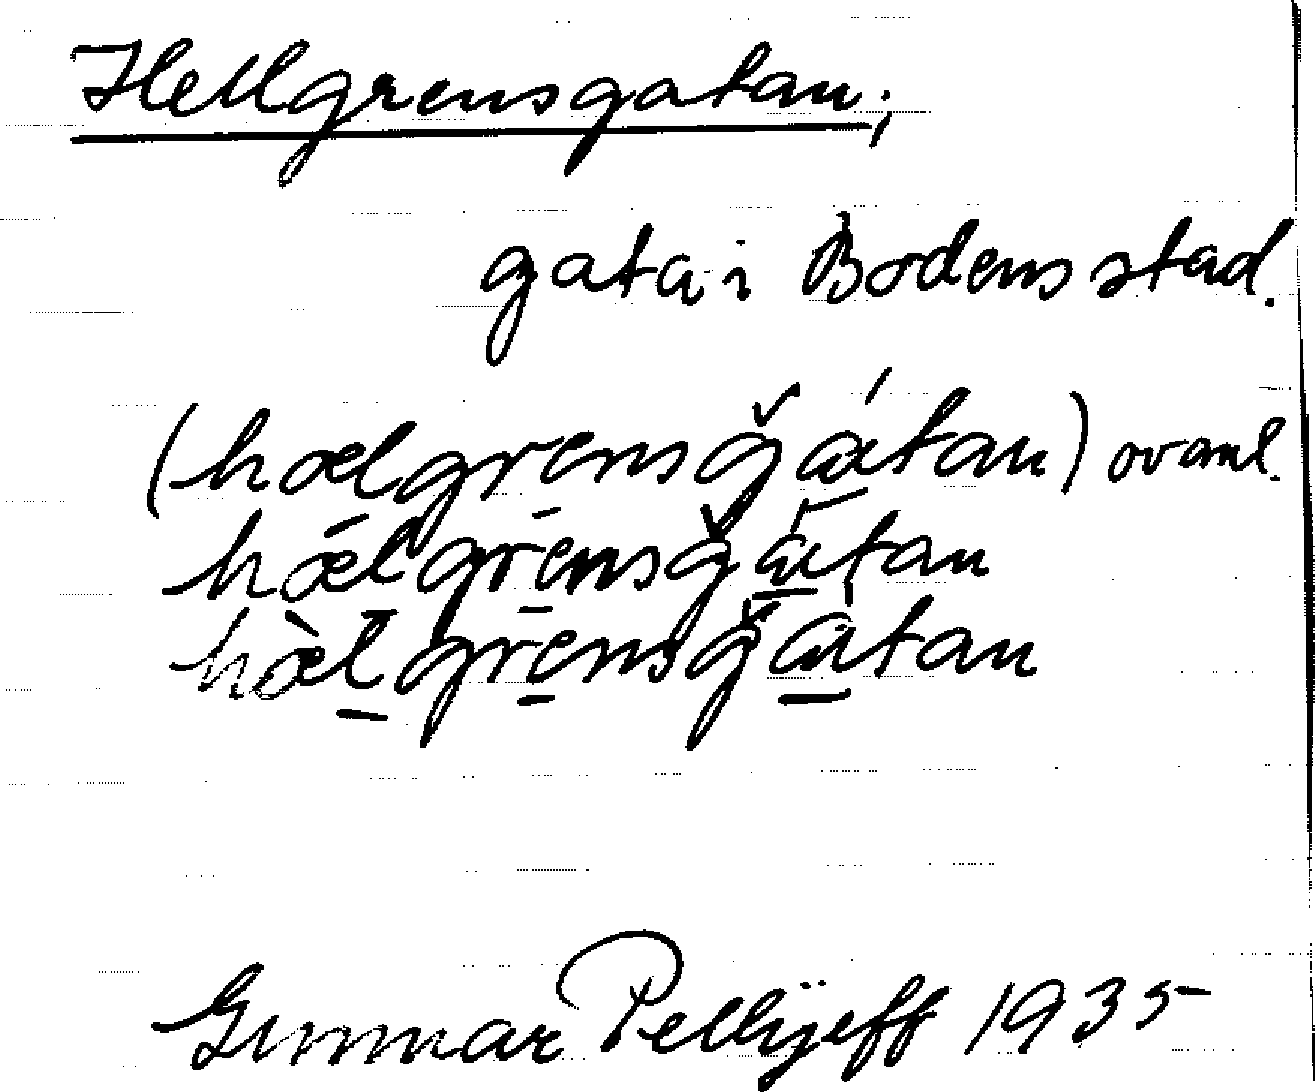 Hellgrensgatan;
gata i Bodens stad.
(hælgrensğatan) ovanl.
hælgrensğatan
hælgrensğatan
Gunnar Pellijeff 1935